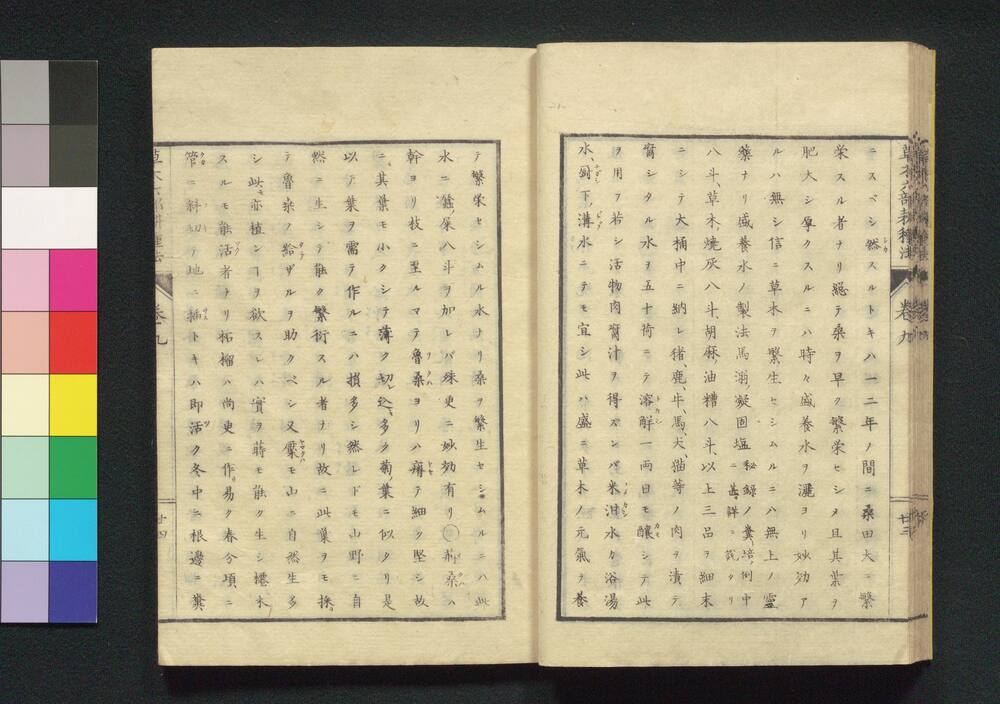 草木六部耕種法 巻九 廿三
ニスベシ然スルトキハ一二年ノ間ニ桑田大ニ繁
栄スル者ナリ総テ桑ヲ早ク繁栄セシメ且其葉ヲ
肥大シ厚クスルニハ時々盛養水ヲ灌ヨリ妙効ア
ルハ無シ信ニ草木ヲ繁生セシムルニハ無上ノ霊
薬ナリ盛養水ノ製法馬溺凝固塩秘録ノ糞培例中ニ甚詳ニ説タリ
八斗、草木焼灰八斗、胡麻油糟八斗、以上三品ヲ細末
ニシテ大桶中ニ納レ猪、鹿、牛、馬、犬、猫等ノ肉ヲ漬テ
腐シタル水ヲ五十荷ニテ溶解一両日モ醸シテ此
ヲ用フ若シ活物肉腐汁ヲ得ズンバ米泔水カ浴湯
水、厨下、溝水ニテモ宜シ此ハ盛ニ草木ノ元氣ヲ養
テ繁栄セシムル水ナリ桑ヲ繁生セシムルニハ此
水ニ蚕屎八斗ヲ加レバ殊更ニ妙効有リ〇荊桑ハ
幹ヨリ枝ニ至ルマテ魯桑ヨリハ瘠テ細ク堅シ故
ニ其葉モ小クシテ薄ク切込多ク菊葉ニ似タリ是
以テ葉ヲ需テ作ルニハ損多シ然レドモ山野ニ自
然ニ生シテ能ク繁衍スル者ナリ故ニ此葉ヲモ採
テ魯桑ノ給ザルヲ助クベシ又檿モ山ニ自然生多
シ此モ亦植ンヿヲ欲スレハ實ヲ蒔モ能ク生シ樁木
スルモ能活者ナリ柘榴ハ尚更ニ作易ク春分頃ニ
管ニ斜切テ地ニ插トキハ即活ク冬中ニ根邊ニ糞
草木六部耕種法 巻九 廿四